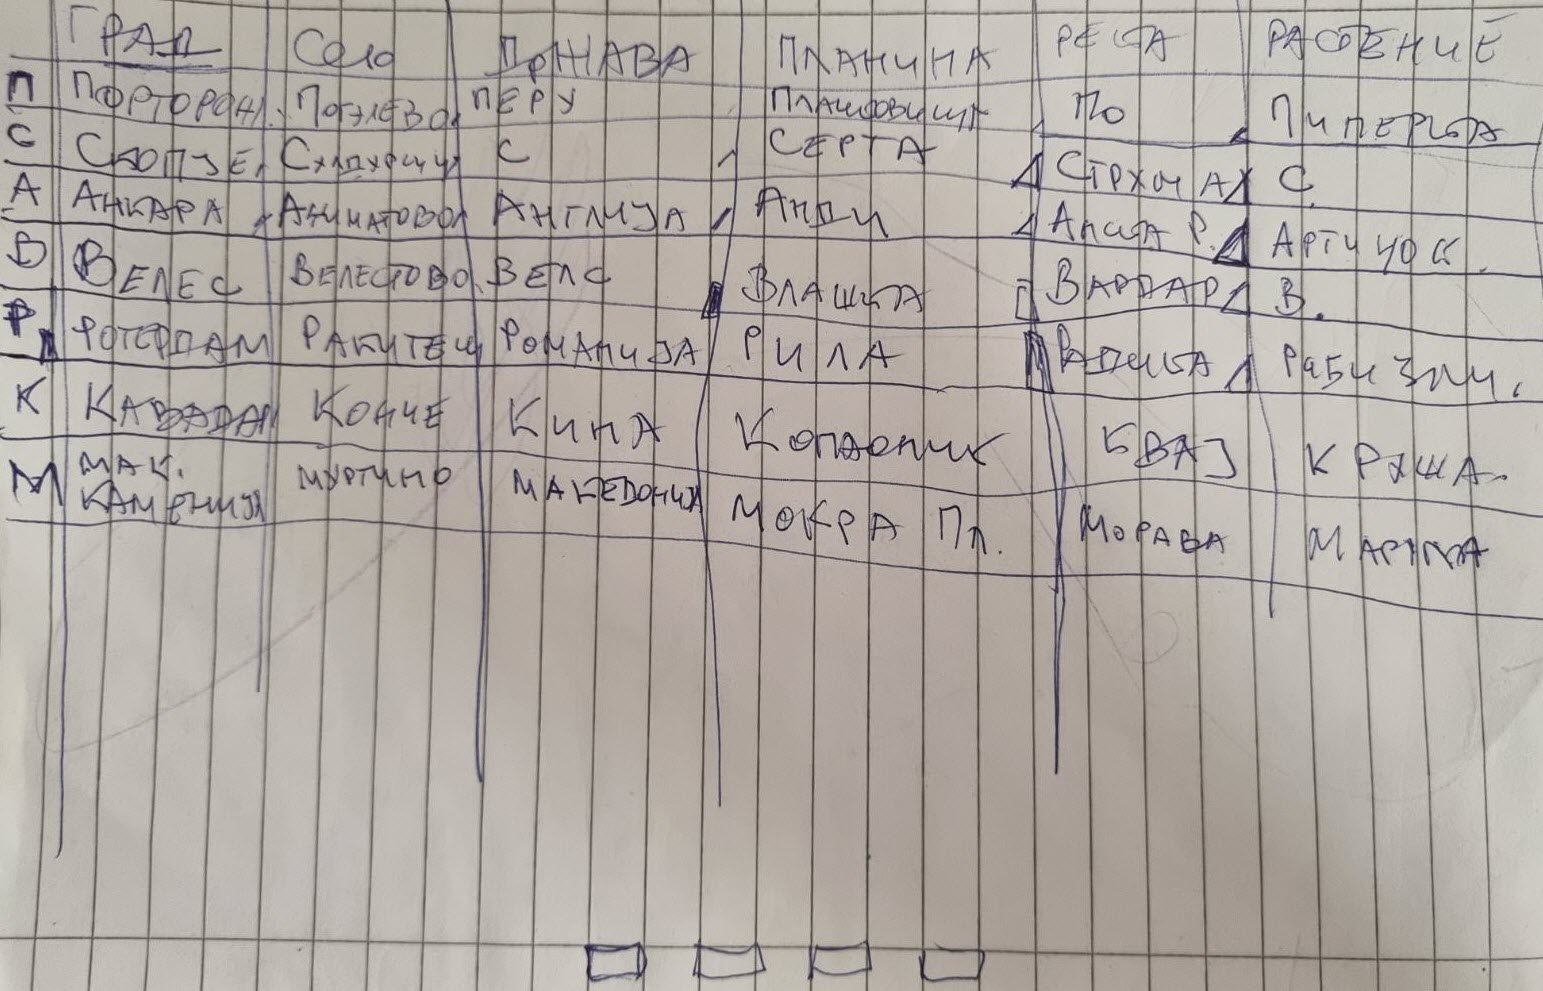 ГРАД Село ДРЖАВА ПЛАНИНА РЕКА РАСТЕНИЕ
П ПОРТОРОЖ ПЕРУ ПЛАЧКОВИЦА По ПИПЕРКА
С СКОПЈЕ С СЕРТА СТРУМА С.
А АНКАРА АКИНАТОВО АНГЛИЈА АНДИ АРТИЧОК.
В ВЕЛЕС ВЕЛЕСТОВО ВЕЛС ВЛАШКА ВАРДАР В.
Р РОТЕРДАМ РАКИТЕЦ РОМАНИЈА РИЛА РАДИКА
К КАВАДАР КОНЧЕ КИНА КОПАОНИК КВАЈ КРУША
М МАК. КАМЕНИЦА МУРТИНО МАКЕДОНИЈА МОКРА Пл. МОРАВА